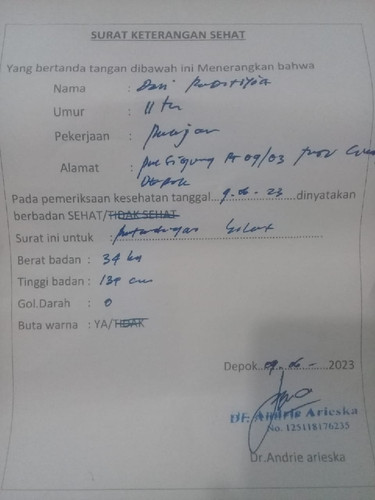 SURAT KETERANGAN SEHAT
Yang bertanda tangan dibawah ini Menerangkan bahwa
Nama :
Umur : 11 th
Pekerjaan : Pelajar
Alamat : 09/03
Depok
Pada pemeriksaan kesehatan tanggal 9-06-23 dinyatakan
berbadan SEHAT/TIDAK SEHAT
Surat ini untuk : Silat
Berat badan : 34 kg
Tinggi badan : 139 cm
Gol.Darah : O
Buta warna : YA/TIDAK
Depok 09-06- 2023
Dr. Andrie Arieska
No. 125118176235
Dr.Andrie arieska